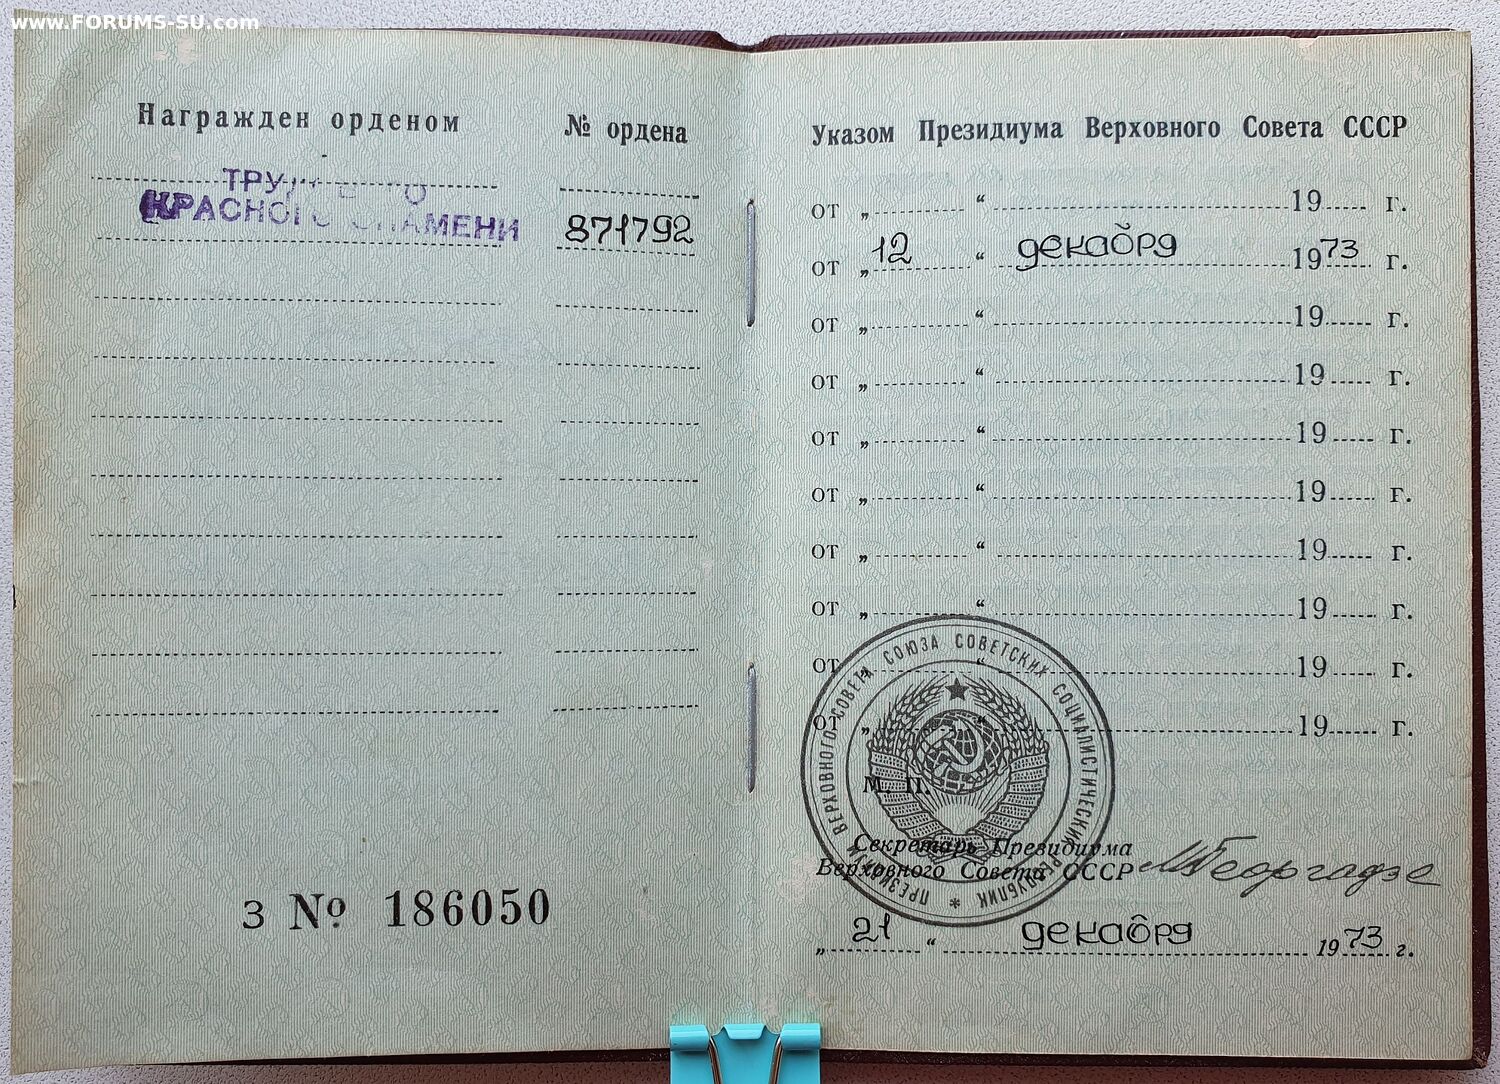 www.FORUMS-SU.com
Награжден орденом № ордена
КРАСНОГО ЗНАМЕНИ 871792
З № 186050
Указом Президиума Верховного Совета СССР
от „ “ 19 г.
от „ 12 “ декабря 1973 г.
от „ “ 19 г.
от „ “ 19 г.
от „ “ 19 г.
от „ “ 19 г.
от „ “ 19 г.
от „ “ 19 г.
от „ “ 19 г.
от „ “ 19 г.
ПРЕЗИДИУМ ВЕРХОВНОГО СОВЕТА СОЮЗА СОВЕТСКИХ СОЦИАЛИСТИЧЕСКИХ РЕСПУБЛИК *
М. П.
Секретарь Президиума
Верховного Совета СССР МГеоргадзе
„ 21 “ декабря 1973 г.